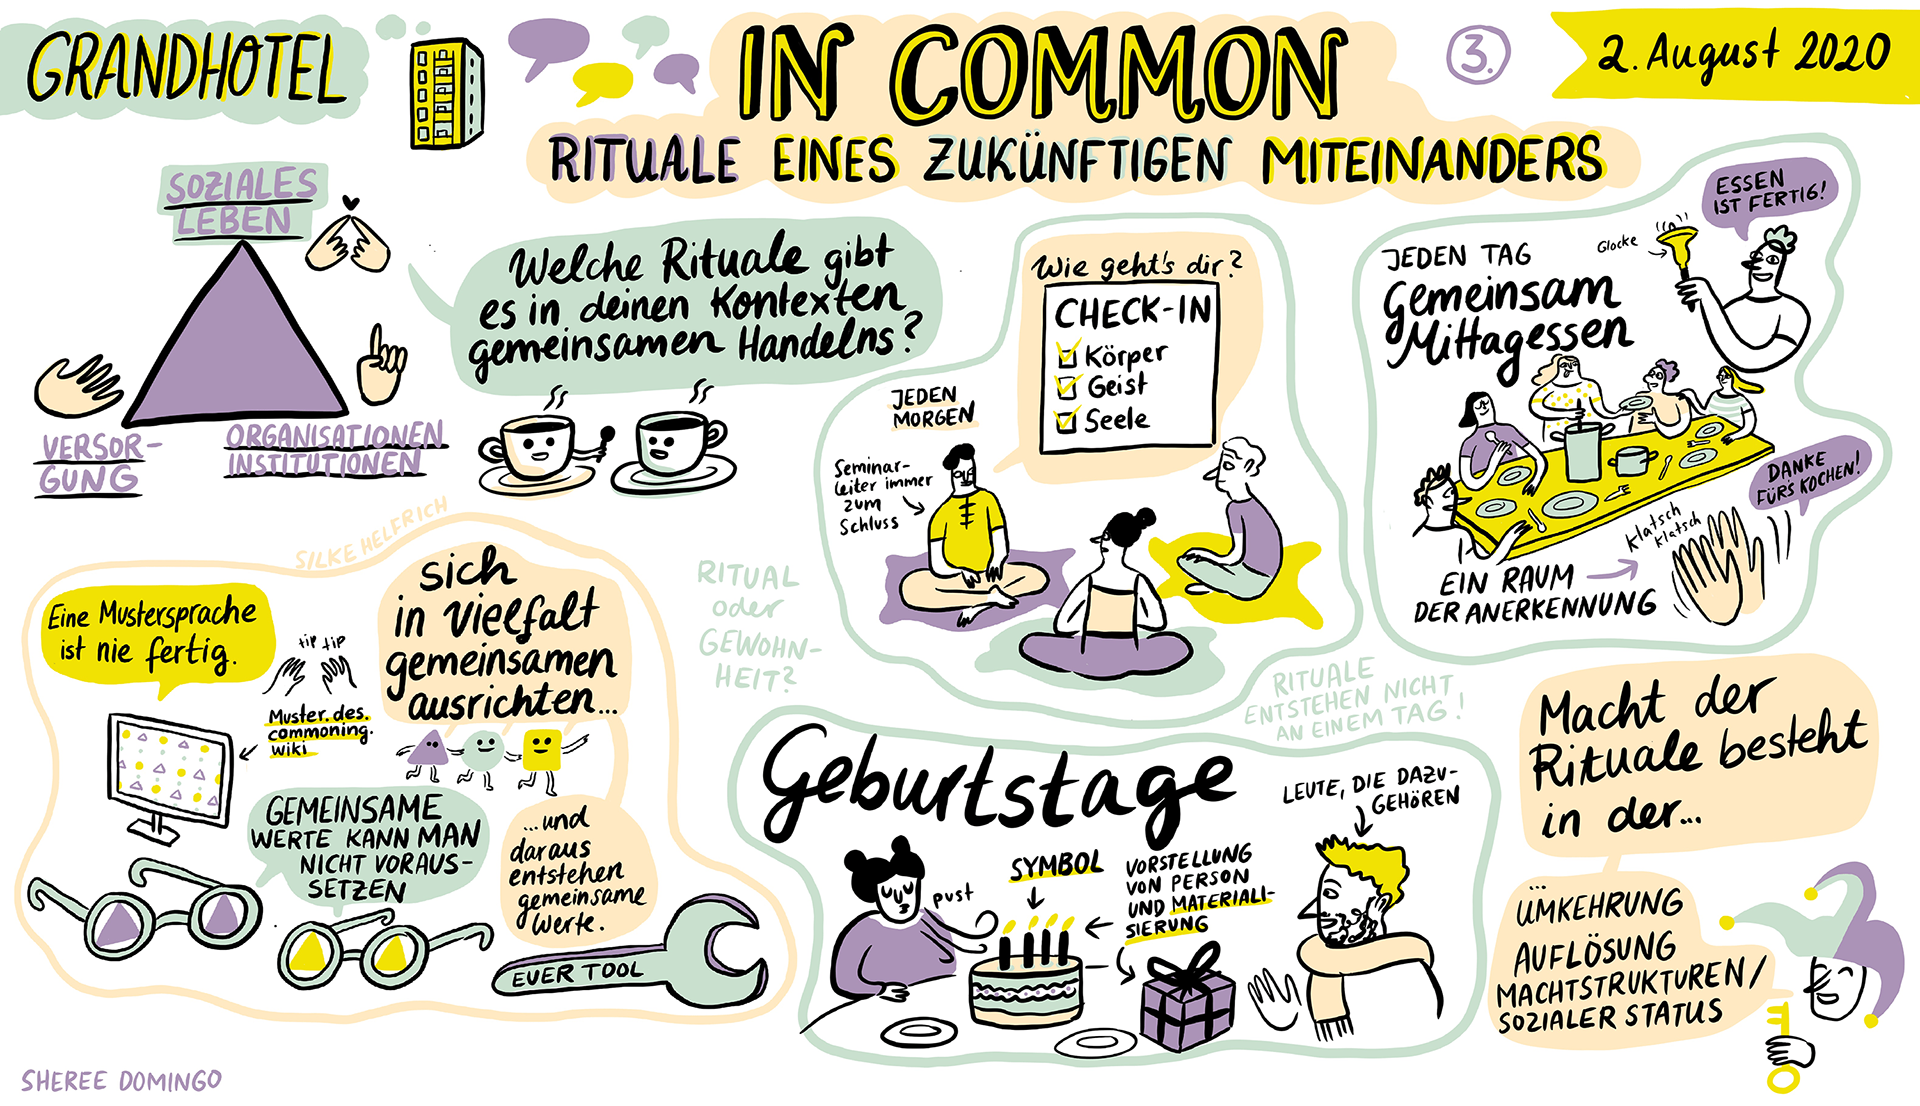 GRANDHOTEL
IN COMMON
RITUALE EINES ZUKÜNFTIGEN MITEINANDERS
3.
2. August 2020
SOZIALES
LEBEN
VERSOR-
GUNG
ORGANISATIONEN
INSTITUTIONEN
Welche Rituale gibt
es in deinen Kontexten
gemeinsamen Handelns?
Wie geht's dir?
CHECK-IN
Körper
Geist
Seele
JEDEN
MORGEN
Seminar-
leiter immer
zum
Schluss
JEDEN TAG
Gemeinsam
Mittagessen
Glocke
ESSEN
IST FERTIG!
DANKE
FÜR'S KOCHEN!
Klatsch
Klatsch
EIN RAUM
DER ANERKENNUNG
SILKE HELFRICH
Eine Mustersprache
ist nie fertig.
tip tip
Muster.des.
commoning.
wiki
sich
in Vielfalt
gemeinsamen
ausrichten...
GEMEINSAME
WERTE KANN MAN
NICHT VORAUS-
SETZEN
...und
daraus
entstehen
gemeinsame
Werte.
EUER TOOL
RITUAL
oder
GEWOHN-
HEIT?
RITUALE
ENTSTEHEN NICHT
AN EINEM TAG!
Geburtstage
pust
SYMBOL
VORSTELLUNG
VON PERSON
UND MATERIALI-
SIERUNG
LEUTE, DIE DAZU-
GEHÖREN
Macht der
Rituale besteht
in der...
ÜMKEHRUNG
AUFLÖSUNG
MACHTSTRUKTUREN/
SOZIALER STATUS
SHEREE DOMINGO